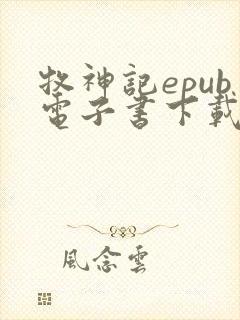 牧神記epub
電子書下載
風念雲